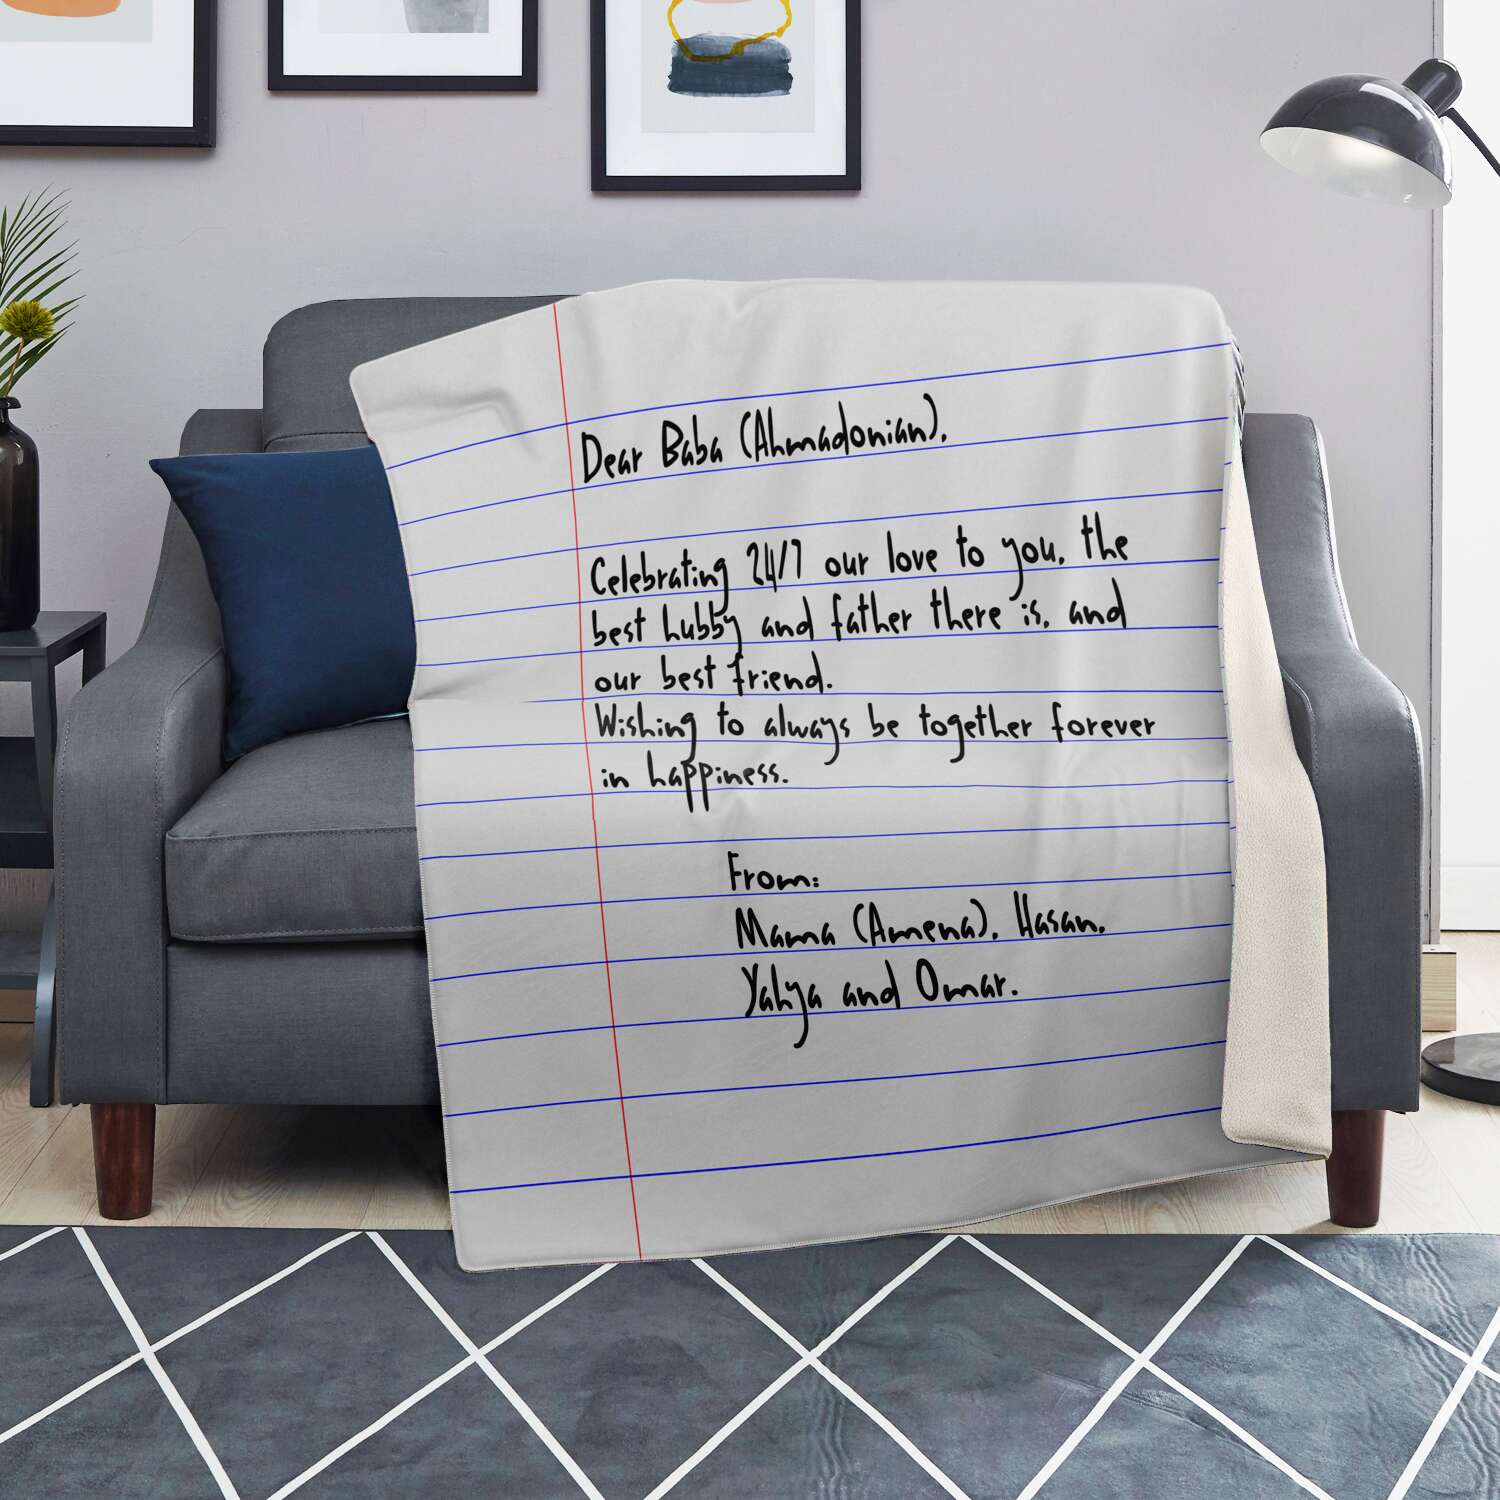 Dear Baba (Ahmadonian),
Celebrating 24/7 our love to you, the
best hubby and father there is, and
our best friend.
Wishing to always be together forever
in happiness.
From:
Mama (Amena), Hasan,
Yahya and Omar.